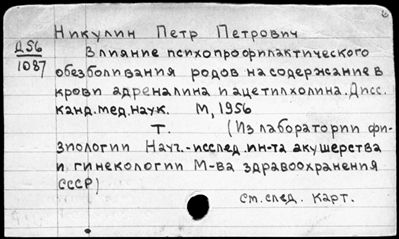 Никулин Петр Петрович
Д56
1087
Влияние психопрофилактического
обезболивания родов на содержание в
крови адреналина и ацетилхолина. Дисс.
канд. мед. наук. М, 1956
Т. (Из лаборатории фи-
зиологии Науч.-исслед. ин-та акушерства
и гинекологии М-ва здравоохранения
СССР)
см. след. карт.